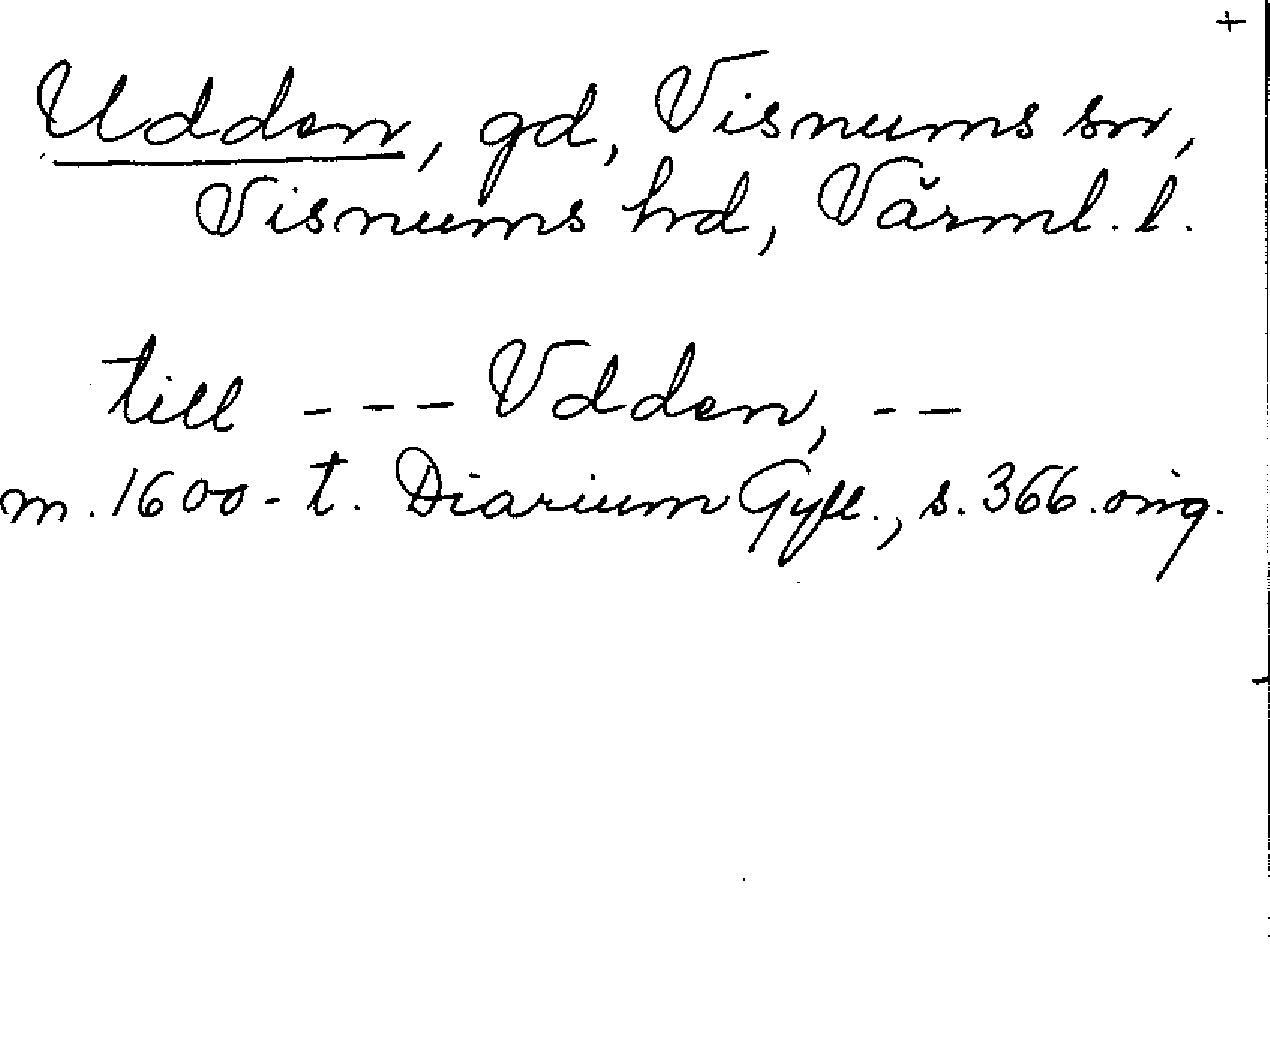 +
Udden, gd, Visnums sn,
Visnums hd, Värml. l.
till --- Vdden, --
m. 1600-t. Diarium Gyll., s. 366. orig.